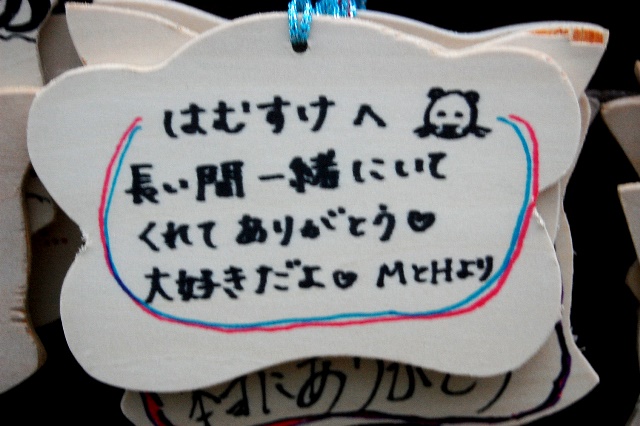 はむすけへ
長い間一緒にいて
くれてありがとう♥
大好きだよ♥ MとHより
にありがとう